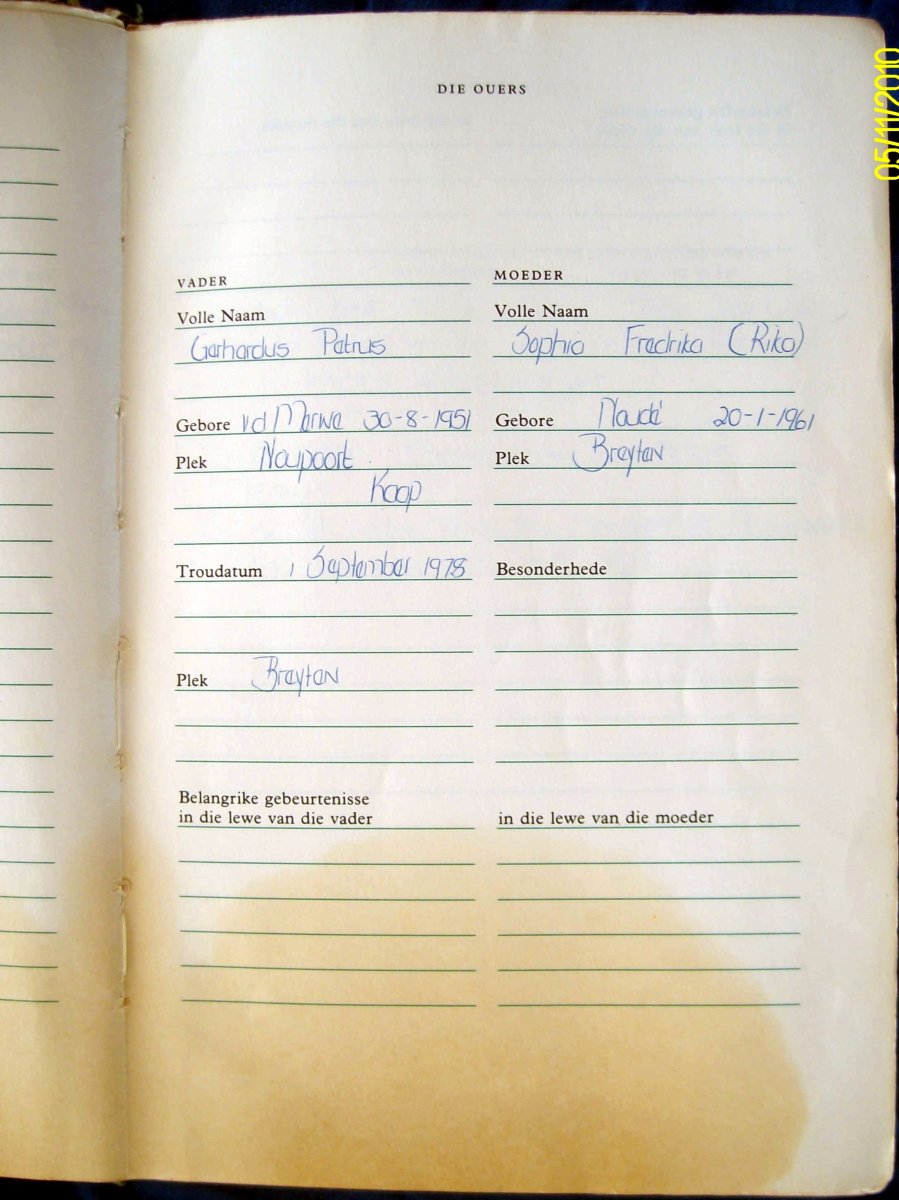 DIE OUERS
VADER
Volle Naam
Gerhardus Petrus
Gebore v.d Merwe 30-8-1951
Plek Noupoort
Kaap
Troudatum 1 September 1978
Plek Breyten
Belangrike gebeurtenisse
in die lewe van die vader
MOEDER
Volle Naam
Sophia Fredrika (Rika)
Gebore Naudé 20-1-1961
Plek Breyten
Besonderhede
in die lewe van die moeder
05/11/2010